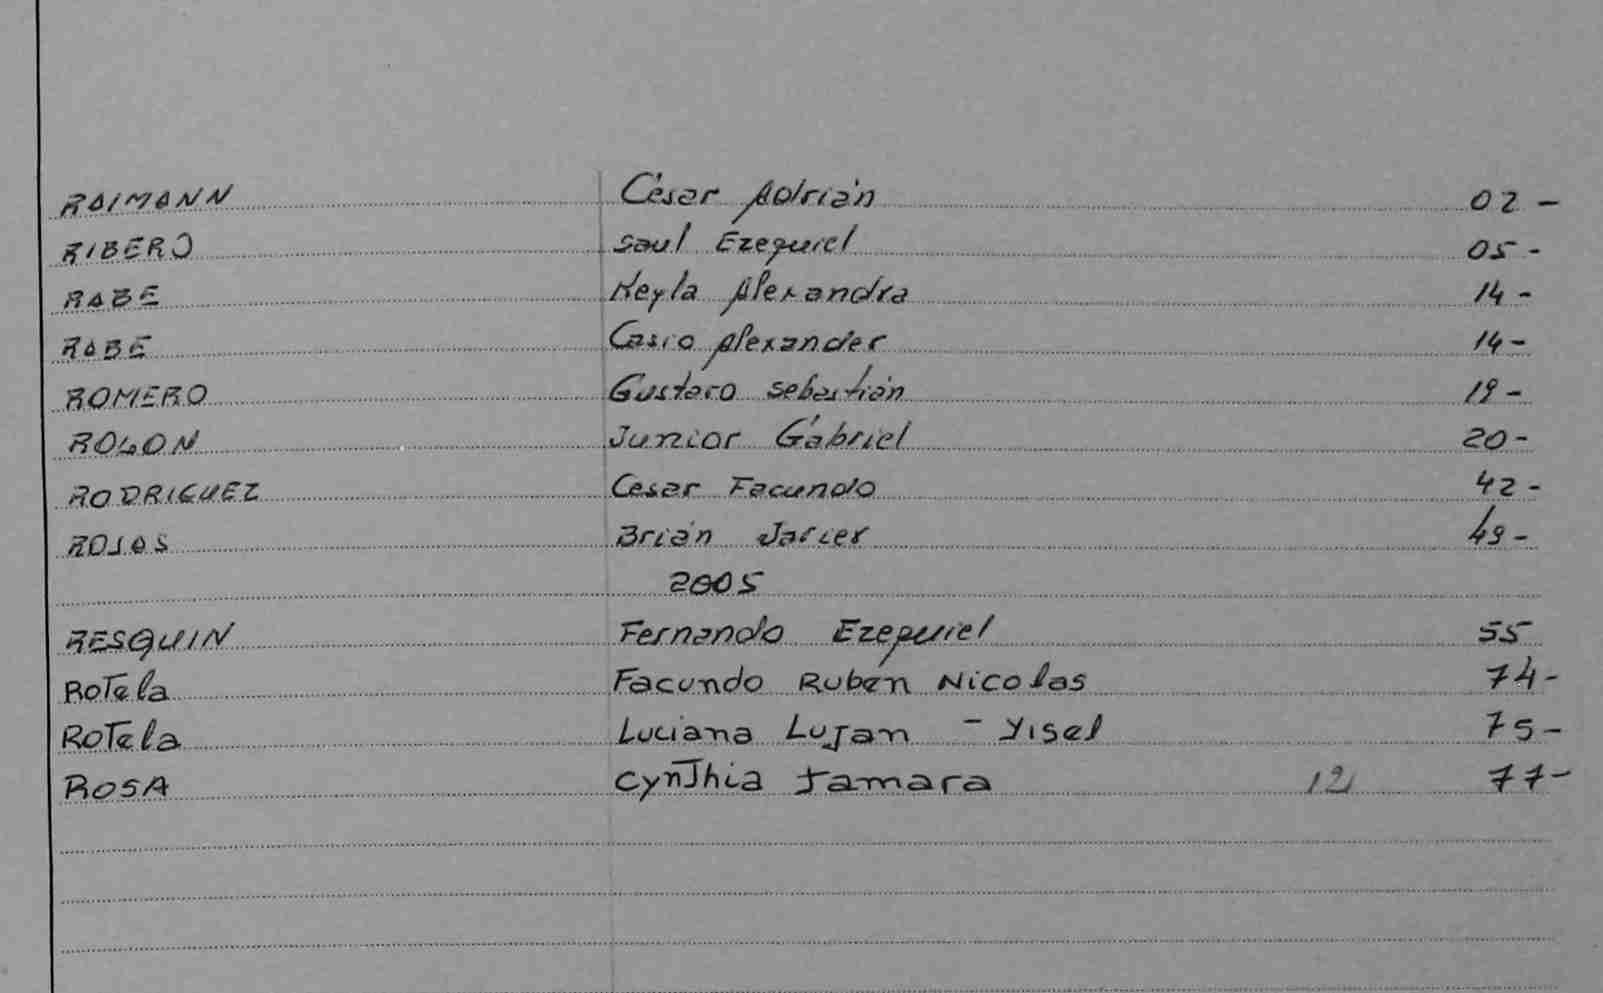 RAIMANN César Adrián 02 -
RIBERO Saul Ezequiel 05 -
RABE Keyla Alexandra 14 -
RABE Casio Alexander 14 -
ROMERO Gustavo Sebastián 19 -
ROLON Junior Gabriel 20 -
RODRIGUEZ Cesar Facundo 42 -
ROJAS Brián Javier 49 -
2005
RESQUIN Fernando Ezequiel 55
Rotela Facundo Ruben Nicolas 74 -
Rotela Luciana Lujan - Yisel 75 -
ROSA Cynthia Tamara 77 -